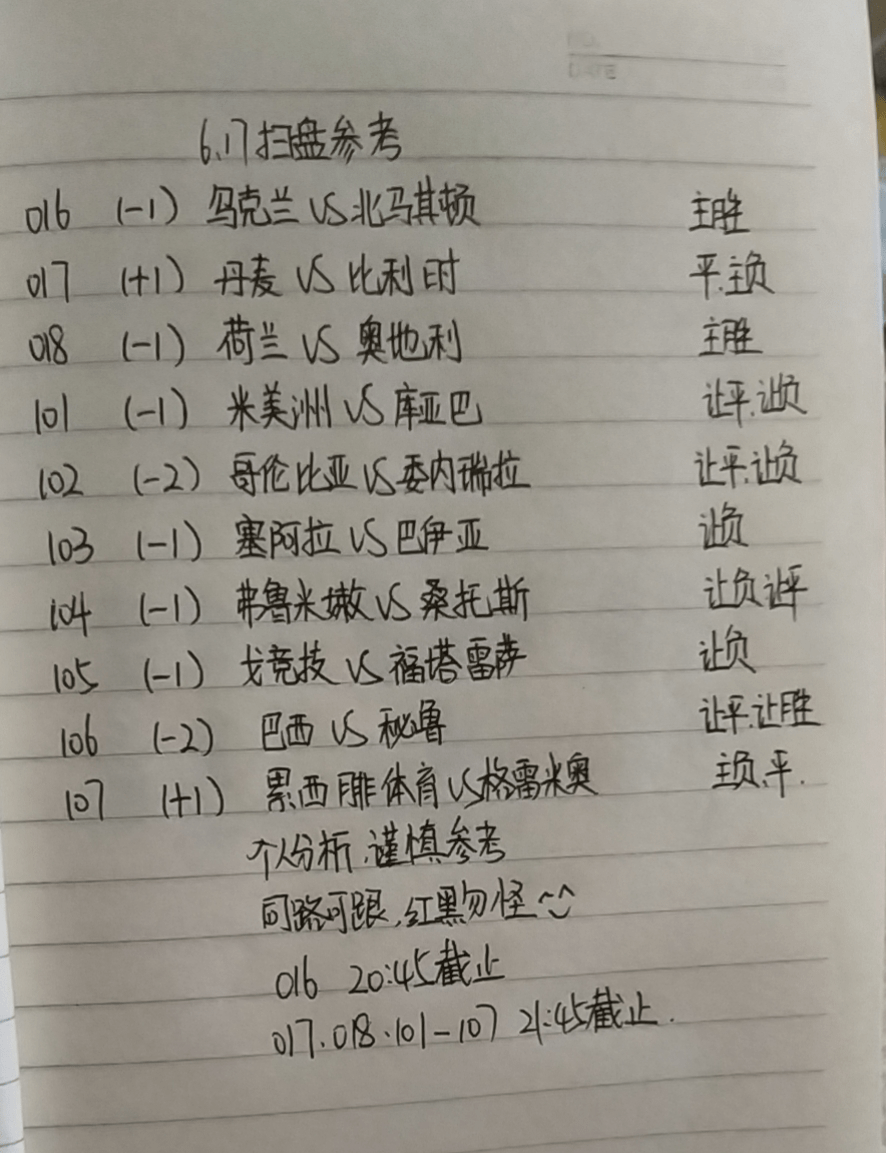 6.17扫盘参考
016 (-1) 乌克兰 VS 北马其顿 主胜
017 (+1) 丹麦 VS 比利时 平.主负
018 (-1) 荷兰 VS 奥地利 主胜
101 (-1) 米美洲 VS 库亚巴 让平.让负
102 (-2) 哥伦比亚 VS 委内瑞拉 让平.让负
103 (-1) 塞阿拉 VS 巴伊亚 让负
104 (-1) 弗鲁米嫩 VS 桑托斯 让负让平
105 (-1) 戈竞技 VS 福塔雷萨 让负
106 (-2) 巴西 VS 秘鲁 让平.让胜
107 (+1) 累西腓体育 VS 格雷米奥 主负.平.
个人分析.谨慎参考
同路可跟,红黑勿怪
016 20:45截止
017.018.101-107 21:45截止.